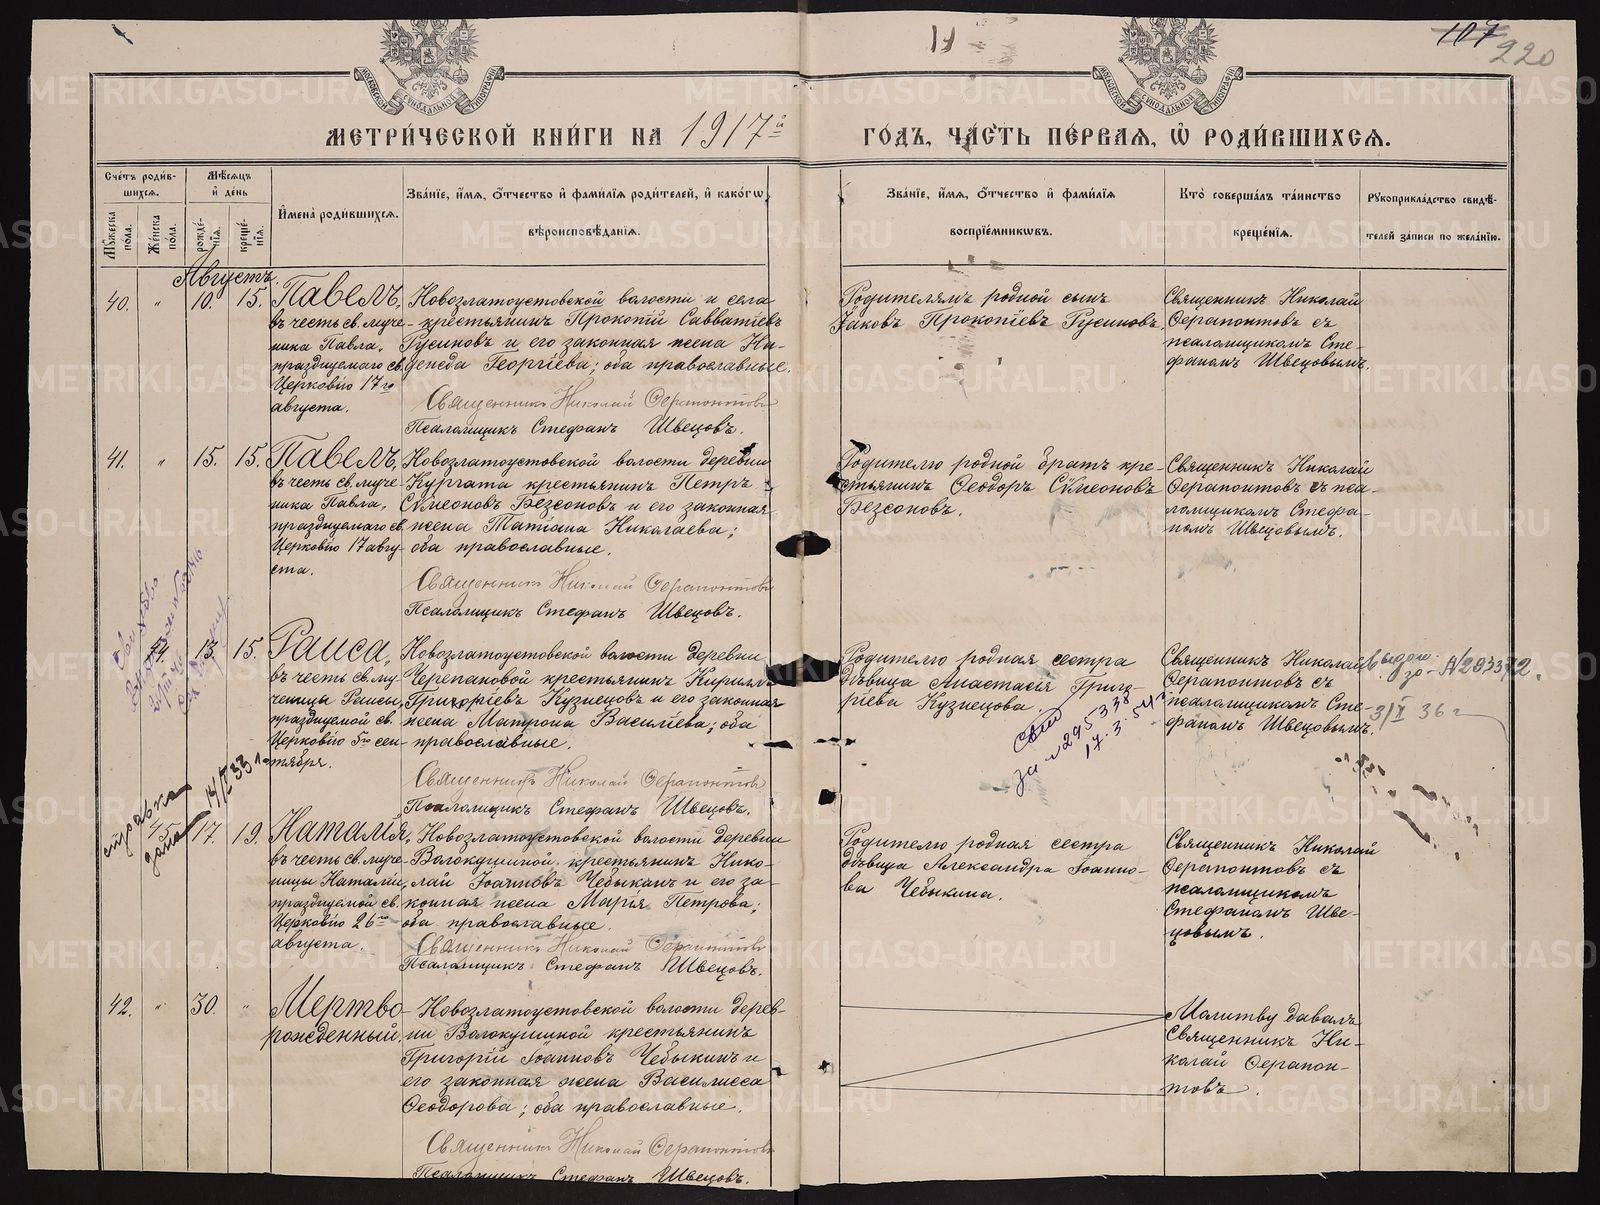 107
220
МЕТРИ́ЧЕСКОЙ КНИ́ГИ НА 1917й ГО́ДЪ, ЧА́СТЬ ПЕ́РВАЯ, Ѡ҆ РОДИ́ВШИХСЯ.
Сче́тъ роди́в-
шихся.
Му́жеска по́ла.
Же́нска по́ла.
Мѣ́сяцъ и҆ де́нь
рожде́-нїя.
креще́-нїя.
И҆мена̀ роди́вшихся.
Зва́нїе, и҆́мя, ѻ҆́тчество и҆ фами́лїя роди́телей, и҆ како́гѡ
вѣроисповѣ́данїя.
Зва́нїе, и҆́мя, ѻ҆́тчество и҆ фами́лїя
воспрїе́мникѡвъ.
Кто̀ соверша́лъ та́инство
креще́нїя.
Рꙋкоприкла́дство свидѣ́-
телей за́писи по жела́нїю.
Августъ.
40. " 10. 15.
Павелъ,
въ честь св. муче-
ника Павла,
празднуемаго св.
Церковію 17го
августа.
Новозлатоустовской волости и села
крестьянинъ Прокопій Савватіевъ
Русиновъ и его законная жена Ки-
ренеда Георгіева; оба православные.
Священникъ Николай Ѳерапонтовъ
Псаломщикъ Стефанъ Швецовъ.
Родителямъ родной сынъ
Іаковъ Прокопіевъ Русиновъ.
Священникъ Николай
Ѳерапонтовъ съ
псаломщикомъ Сте-
фаномъ Швецовымъ.
41. " 15. 15.
Павелъ,
въ честь св. муче-
ника Павла,
празднуемаго св.
Церковію 17 авгу-
ста.
Новозлатоустовской волости деревни
Кургата крестьянинъ Петръ
Сѵмеоновъ Безсоновъ и его законная
жена Татіана Николаева;
оба православные.
Священникъ Николай Ѳерапонтовъ
Псаломщикъ Стефанъ Швецовъ.
Родителю родной братъ кре-
стьянинъ Ѳеодоръ Сѵмеоновъ
Безсоновъ.
Священникъ Николай
Ѳерапонтовъ съ пса-
ломщикомъ Стефа-
номъ Швецовымъ.
44. 13. 15.
Раиса,
въ честь св. му-
ченицы Раисы,
празднуемой св.
Церковію 5го сен-
тября.
Новозлатоустовской волости деревни
Черепановой крестьянинъ Кириллъ
Григоріевъ Кузнецовъ и его законная
жена Матрона Василіева; оба
православные.
Священникъ Николай Ѳерапонтовъ
Псаломщикъ Стефанъ Швецовъ.
Родителю родная сестра
дѣвица Анастасія Григо-
ріева Кузнецова.
за № 295338
17.3.54г
Священникъ Николай
Ѳерапонтовъ съ
псаломщикомъ Сте-
фаномъ Швецовымъ.
№ 293372.
3/I 36 г
справка
дана 14/I 33 г.
45 17. 19.
Наталія,
въ честь св. муче-
ницы Наталіи,
празднуемой св.
Церковію 26го
августа.
Новозлатоустовской волости деревни
Волокушиной крестьянинъ Нико-
лай Іоанновъ Чебыкинъ и его за-
конная жена Марія Петрова;
оба православные.
Священникъ Николай Ѳерапонтовъ
Псаломщикъ Стефанъ Швецовъ.
Родителю родная сестра
дѣвица Александра Іоанно-
ва Чебыкина.
Священникъ Николай
Ѳерапонтовъ съ
псаломщикомъ
Стефаномъ Шве-
цовымъ.
42. " 30. "
Мертво-
рожденный.
Новозлатоустовской волости дерев-
ни Волокушиной крестьянинъ
Григорій Іоанновъ Чебыкинъ и
его законная жена Василисса
Ѳеодорова; оба православные.
Священникъ Николай Ѳерапонтовъ
Псаломщикъ Стефанъ Швецовъ.
Молитву давалъ
Священникъ Ни-
колай Ѳерапон-
товъ.